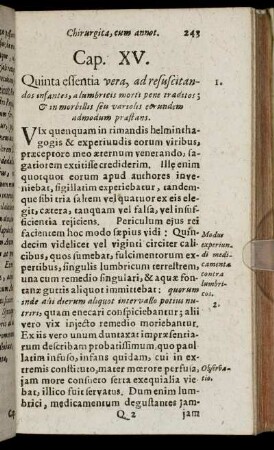 Chirurgica, cum annot. 243
Cap. XV.
Quinta essentia vera, ad resuscitan- 1.
dos infantes, a lumbricis morti pene traditos;
& in morbillis seu variolis eorundem
admodum præstans.
VIx quenquam in rimandis helmintha-
gogis & experiundis eorum viribus,
præceptore meo æternum venerando, sa-
gatiorem extitisse crediderim. Ille enim
quotquot eorum apud authores inve-
niebat, sigillatim experiebatur, tandem-
que sibi tria saltem vel quatuor ex eis dele-
git, cætera, tanquam vel falsa, vel insuf-
ficientia rejiciens. Periculum ejus rei
facientem hoc modo sæpius vidi: Quin-
decim videlicet vel viginti circiter calici-
bus, quos sumebat, fulcimentorum ex-
pertibus, singulis lumbricum terrestrem,
una cum remedio singulari, & aquæ fon-
tanæ guttis aliquot immittebat: quorum
inde alii dierum aliquot intervallo potius nu-
triri, quam enecari conspiciebantur; alii
vero vix injecto remedio moriebantur.
Modus
experiun-
di medi-
camenta
contra
lumbri-
cos.
2.
Ex iis vero unum duntaxat impræsentia-
rum describam probatissimum, quo paul-
latim infuso, infans quidam, cui in ex-
tremis constituto, mater mœrore perfusa,
jam more consueto serta exequialia vie-
bat, illico fuit servatus. Dum enim lum-
brici, medicamentum degustantes jam-
Observa-
tio.
Q 2 jam